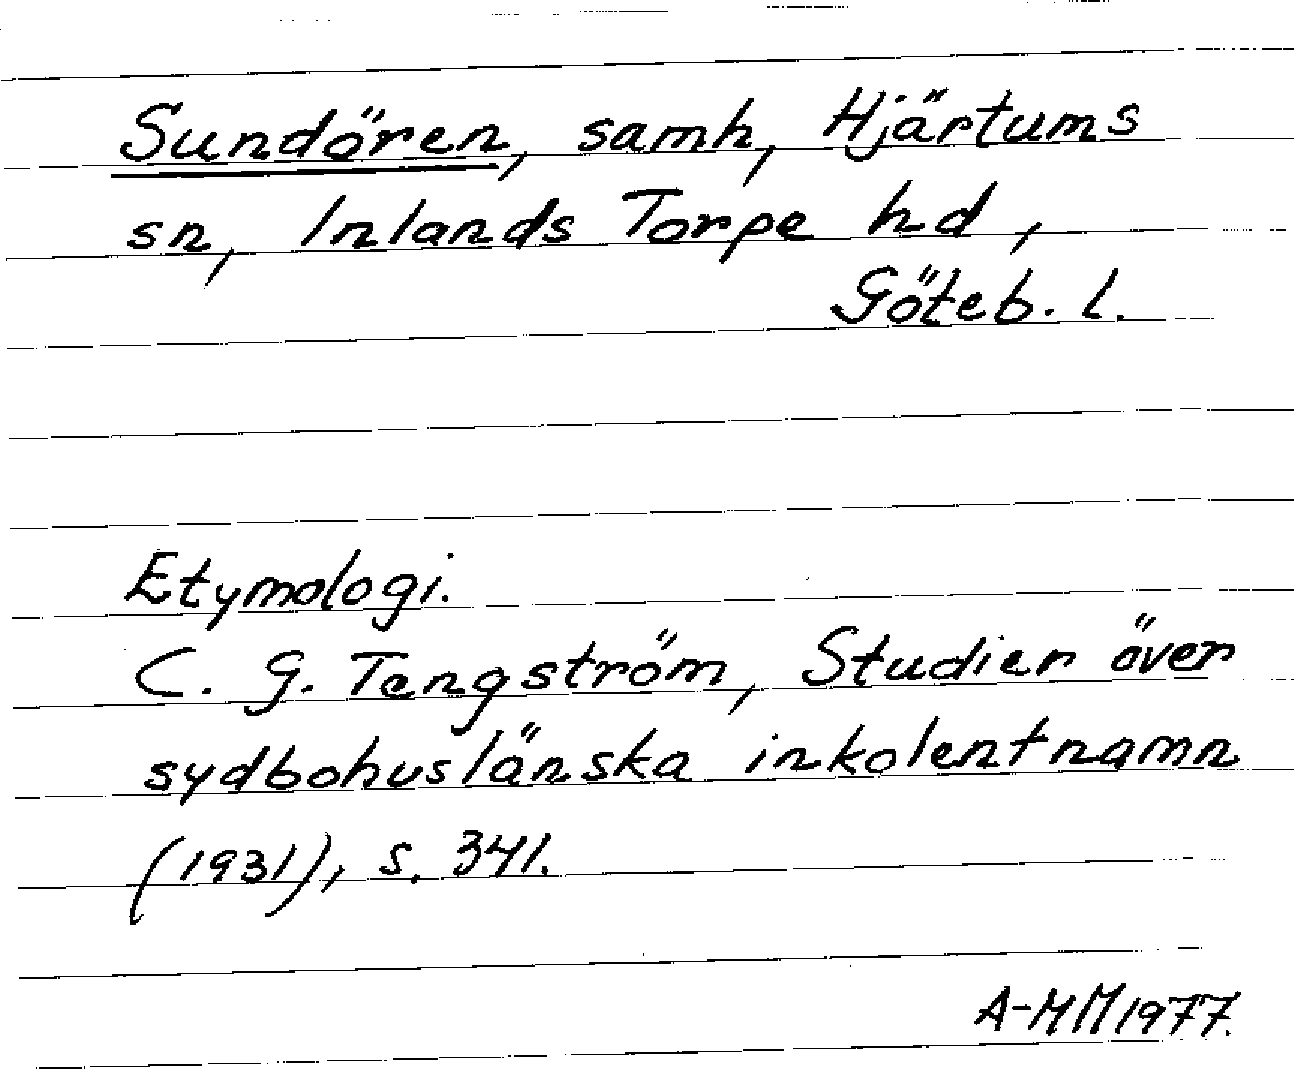 Sundören, samh, Hjärtums
sn, Inlands Torpe hd,
Göteb. l.
Etymologi.
C. G. Tengström, Studier över
sydbohuslänska inkolentnamn
(1931), s. 341.
A-MM 1977.